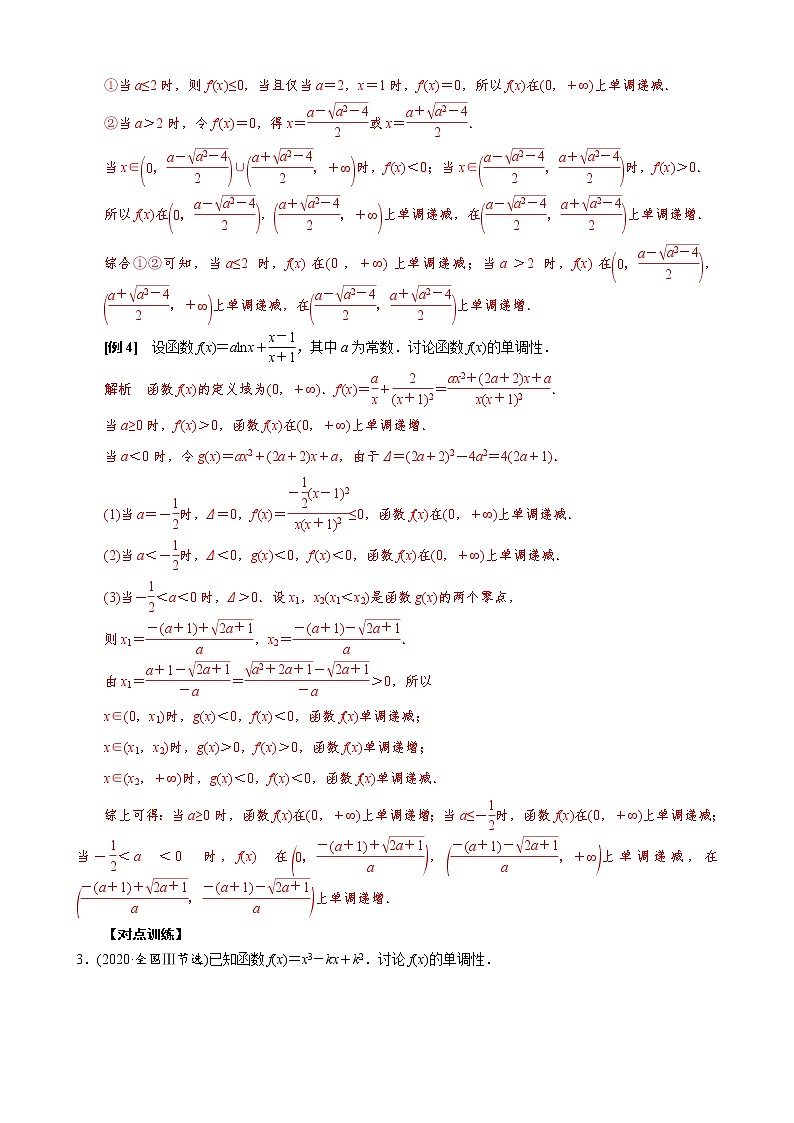 ①当 a≤2 时，则 f′(x)≤0，当且仅当 a＝2，x＝1 时，f′(x)＝0，所以 f(x)在(0，＋∞)上单调递减．
②当 a＞2 时，令 f′(x)＝0，得 x＝\frac{a－\sqrt{a²－4}}{2}或 x＝\frac{a＋\sqrt{a²－4}}{2}．
当 x∈(0，\frac{a－\sqrt{a²－4}}{2})∪(\frac{a＋\sqrt{a²－4}}{2}，＋∞)时，f′(x)＜0；当 x∈(\frac{a－\sqrt{a²－4}}{2}，\frac{a＋\sqrt{a²－4}}{2})时，f′(x)＞0．
所以 f(x)在(0，\frac{a－\sqrt{a²－4}}{2})，(\frac{a＋\sqrt{a²－4}}{2}，＋∞)上单调递减，在(\frac{a－\sqrt{a²－4}}{2}，\frac{a＋\sqrt{a²－4}}{2})上单调递增．
综合①②可知，当 a≤2 时，f(x) 在(0，＋∞) 上单调递减；当 a＞2 时，f(x) 在(0，\frac{a－\sqrt{a²－4}}{2})，
(\frac{a＋\sqrt{a²－4}}{2}，＋∞)上单调递减，在(\frac{a－\sqrt{a²－4}}{2}，\frac{a＋\sqrt{a²－4}}{2})上单调递增．
[例 4] 设函数 f(x)＝alnx＋\frac{x－1}{x＋1}，其中 a 为常数．讨论函数 f(x)的单调性．
解析 函数 f(x)的定义域为(0，＋∞)．f′(x)＝\frac{a}{x}＋\frac{2}{(x＋1)²}＝\frac{ax²＋(2a＋2)x＋a}{x(x＋1)²}．
当 a≥0 时，f′(x)＞0，函数 f(x)在(0，＋∞)上单调递增．
当 a＜0 时，令 g(x)＝ax²＋(2a＋2)x＋a，由于 Δ＝(2a＋2)²－4a²＝4(2a＋1)．
(1)当 a＝－\frac{1}{2}时，Δ＝0，f′(x)＝\frac{－\frac{1}{2}(x－1)²}{x(x＋1)²}≤0，函数 f(x)在(0，＋∞)上单调递减．
(2)当 a＜－\frac{1}{2}时，Δ＜0，g(x)＜0，f′(x)＜0，函数 f(x)在(0，＋∞)上单调递减．
(3)当－\frac{1}{2}＜a＜0 时，Δ＞0．设 x₁，x₂(x₁＜x₂)是函数 g(x)的两个零点，
则 x₁＝\frac{－(a＋1)＋\sqrt{2a＋1}}{a}，x₂＝\frac{－(a＋1)－\sqrt{2a＋1}}{a}．
由 x₁＝\frac{a＋1－\sqrt{2a＋1}}{－a}＝\frac{\sqrt{a²＋2a＋1}－\sqrt{2a＋1}}{－a}＞0，所以
x∈(0，x₁)时，g(x)＜0，f′(x)＜0，函数 f(x)单调递减；
x∈(x₁，x₂)时，g(x)＞0，f′(x)＞0，函数 f(x)单调递增；
x∈(x₂，＋∞)时，g(x)＜0，f′(x)＜0，函数 f(x)单调递减．
综上可得：当 a≥0 时，函数 f(x)在(0，＋∞)上单调递增；当 a≤－\frac{1}{2}时，函数 f(x)在(0，＋∞)上单调递减；
当－\frac{1}{2}＜a＜0 时，f(x) 在(0，\frac{－(a＋1)＋\sqrt{2a＋1}}{a})，(\frac{－(a＋1)－\sqrt{2a＋1}}{a}，＋∞)上单调递减，在
(\frac{－(a＋1)＋\sqrt{2a＋1}}{a}，\frac{－(a＋1)－\sqrt{2a＋1}}{a})上单调递增．
【对点训练】
3．(2020·全国Ⅲ节选)已知函数 f(x)＝x³－kx＋k²．讨论 f(x)的单调性．